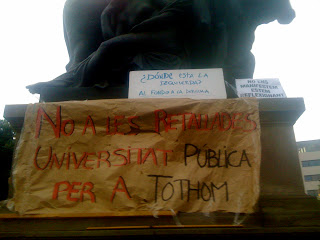 ¿DÓNDE ESTÁ LA
IZQUIERDA?
AL FONDO A LA DERECHA
NO ENS
MANIFESTEM
ESTEM
REFLEXIONANT
NO A LES RETALLADES
UNIVERSITAT PÚBLICA
PER A TOTHOM